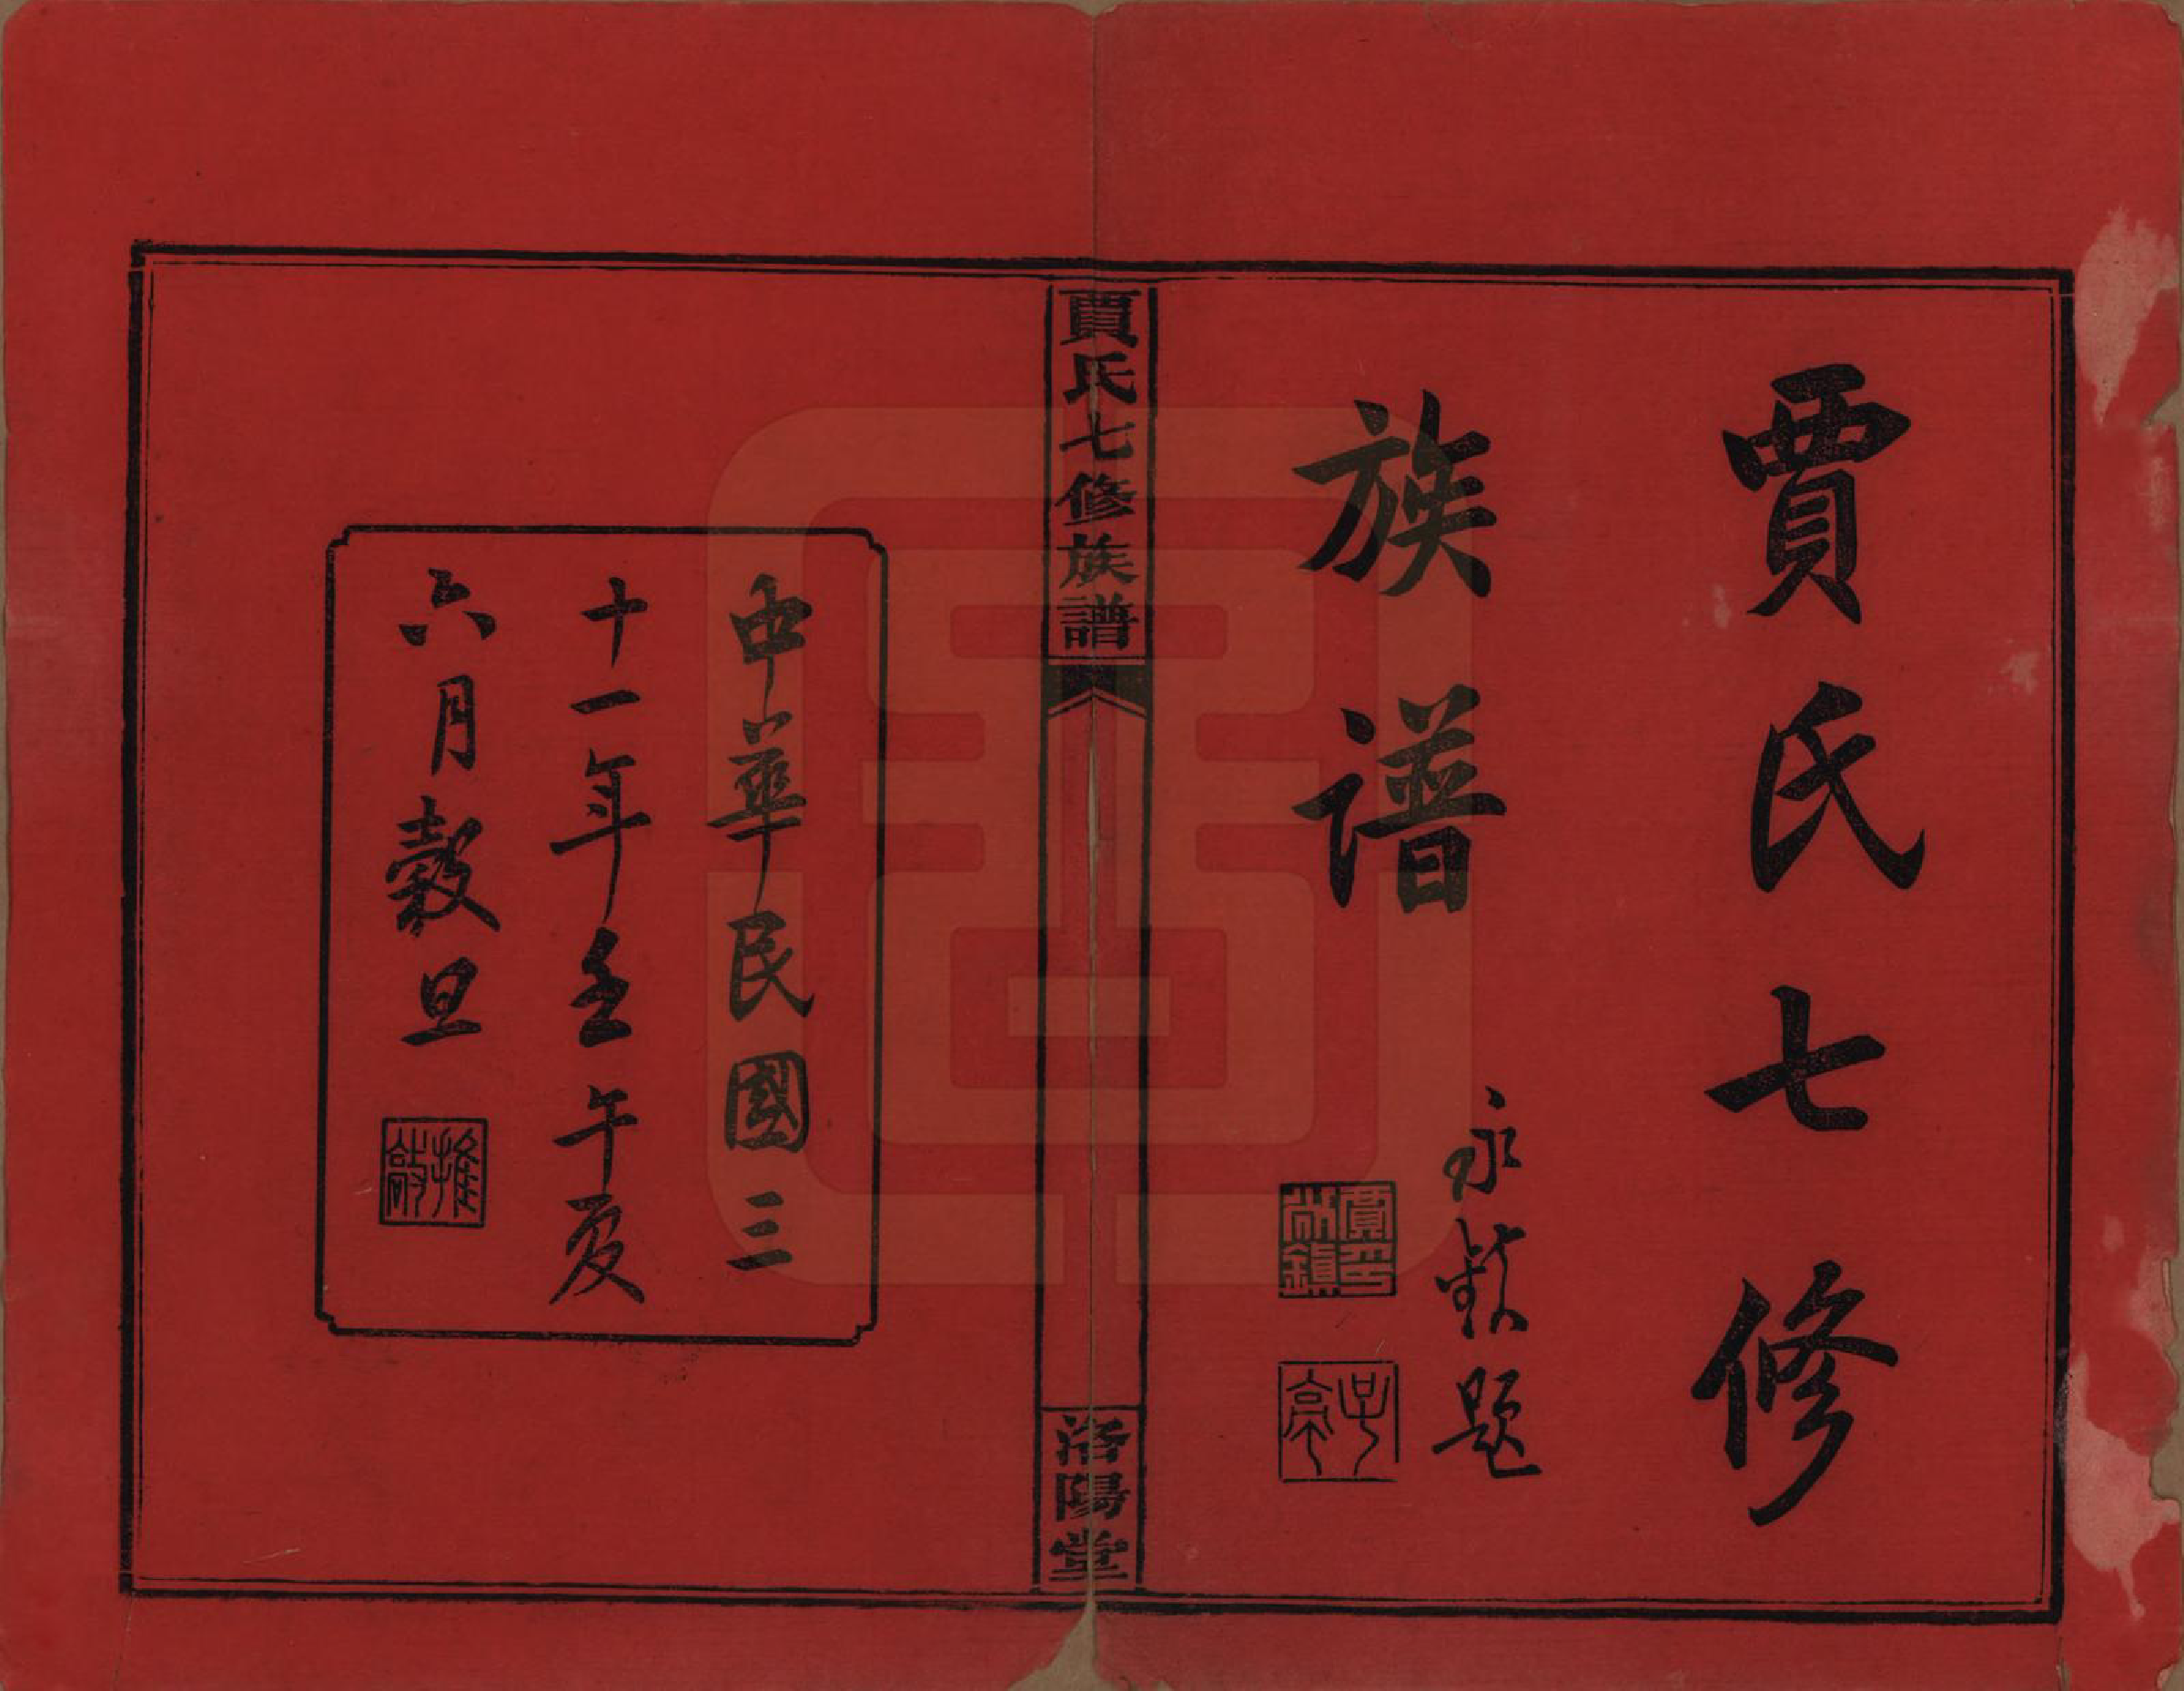 賈氏七修
族譜
永鎮題
賈氏七修族譜
洛陽堂
中華民國三
十一年壬午夏
六月穀旦
推敲